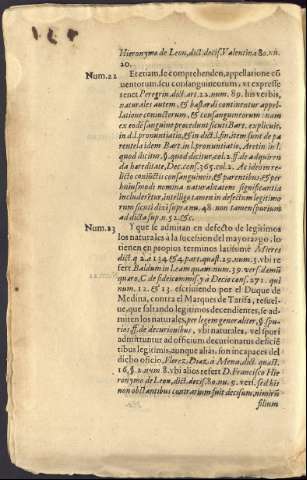 Hieronymo de Leon, dict. decis. Valentina 80. nu.
20.
Num.22 Et etiam, se comprehenden, appellatione cō
uentorum, seu consanguineorum, ut expresse
tenet Peregrin. dict. art. 22. num. 89. his verbis,
naturales autem, & bastardi continentur appel-
latione coniunctorum, & consanguineorum: nam
ex eodē sanguine procedunt sicuti Bart. explicuit,
in d. l. pronuntiatio, & in dict. l. fin. item sunt de pa
rentela idem Bart. in l. pronuntiatio, Aretin. in l.
quod dicitur, §. quod dicitur, col. 2. ff. de adquiren
da hæreditate, Dec. cons. 365. col. 2. Ac idcirco re-
lictis coniūctis consanguineis, & parentibus, & per
huiusmodi nomina naturalitatem significantia
includetur, intelligo tamen in defectum legitimo
rum sicuti dixi supra nu. 48. non tamen spurium
ad dicta sup. n. 52. &c.
Num.23 Y que se admitan en defecto de legitimos
los naturales à la sucession del mayorazgo, lo
tienen en propios terminos latissimè Mieres
dict. q. 2. à 134. & 4. part. quæst. 29. num. 5. vbi re
fert Baldum in l. eam quam num. 39. vers. demū
quæro, C. de fideicommiss. y à Decio cons. 271. qui
num. 12. & 13. escriuiendo por el Duque de
Medina, contra el Marques de Tarifa, resuel-
ue, que faltando legitimos decendientes, se ad-
miten los naturales, per legem generaliter, §. spu-
rios ff. de decurionibus, vbi naturales, vel spurij
admittuntur ad officium decurionatus deficiē
tibus legitimis, aunque aliàs son incapaces del
dicho oficio, Florez. Diaz. à Mena, dict. quæst.
16. §. 2. num 8. vbi alios refert D. Francisco Hie
ronymo de Leon, dict. decis. 80. nu. 5. vers. sed his
non obstantibus contrarium fuit decisum, nimirū
filium